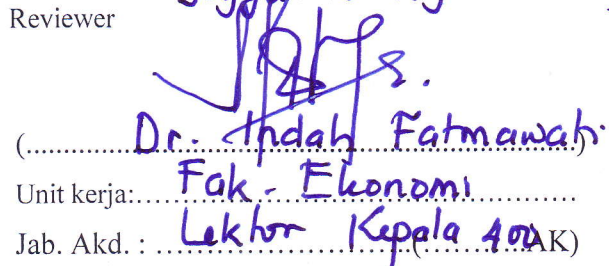 Reviewer
(Dr. Indah Fatmawati.)
Unit kerja: Fak. Ekonomi
Jab. Akd. : Lektor Kepala (400 AK)